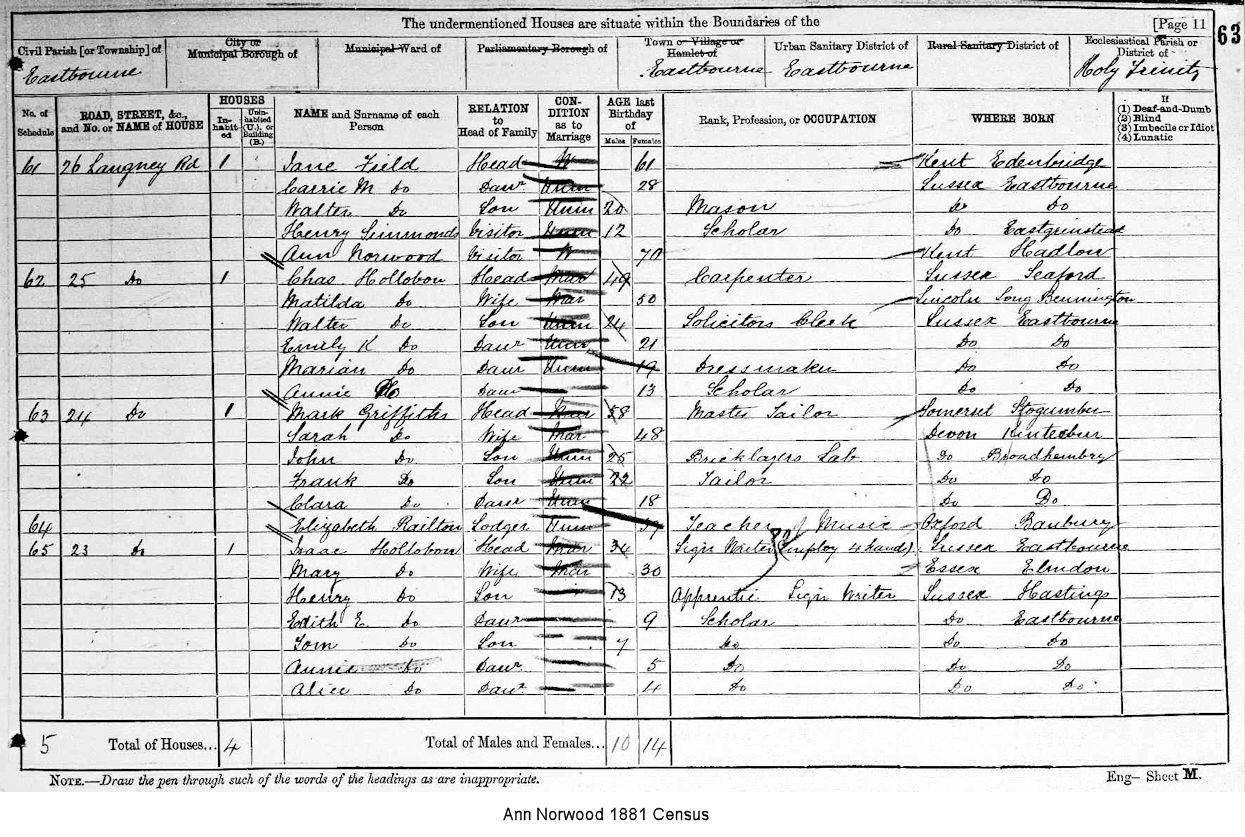 The undermentioned Houses are situate within the Boundaries of the [Page 11 63
Civil Parish [or Township] of City or Municipal Borough of Municipal Ward of Parliamentary Borough of Town or Village or Hamlet of Urban Sanitary District of Rural Sanitary District of Ecclesiastical Parish or District of
Eastbourne Eastbourne Eastbourne Holy Trinity
No. of Schedule ROAD, STREET, &c., and No. or NAME of HOUSE HOUSES Inhabited Uninhabited (U.), or Building (B.) NAME and Surname of each Person RELATION to Head of Family CONDITION as to Marriage AGE last Birthday of Males Females Rank, Profession, or OCCUPATION WHERE BORN If (1) Deaf-and-Dumb (2) Blind (3) Imbecile or Idiot (4) Lunatic
61 26 Langney Rd 1 Jane Field Head W 61 Kent Edenbridge
Carrie M Do Daur Unm 28 Sussex Eastbourne
Walter Do Son Unm 20 Mason Do Do
Henry Simmonds Visitor Unm 12 Scholar Do Eastgrinstead
Ann Norwood Visitor W 70 Kent Hadlow
62 25 Do 1 Chas Hollobon Head Mar 49 Carpenter Sussex Seaford
Matilda Do Wife Mar 50 Lincoln Long Bennington
Walter Do Son Unm 24 Solicitors Clerk Sussex Eastbourne
Emily K Do Daur Unm 21 Do Do
Marian Do Daur Unm 19 Dressmaker Do Do
Annie Do Daur 13 Scholar Do Do
63 24 Do 1 Mark Griffiths Head Mar 58 Master Tailor Somerset Stogumber
Sarah Do Wife Mar 48 Devon
John Do Son Unm 25 Bricklayers Lab Do Broadhembry
Frank Do Son Unm 22 Tailor Do Do
Clara Do Daur Unm 18 Do Do
64 Elizabeth Railton Lodger Unm Teacher of Music Oxford Banbury
65 23 Do 1 Isaac Hollobon Head Mar 34 Sign Writer (employ 4 hands) Sussex Eastbourne
Mary Do Wife Mar 30 Essex Elmdon
Henry Do Son 13 Apprentic Sign Writer Sussex Hastings
Edith E. Do Daur 9 Scholar Do Eastbourne
Tom Do Son 7 Do Do Do
Annie Do Daur 5 Do Do Do
Alice Do Daur 4 Do Do Do
5 Total of Houses... 4 Total of Males and Females... 10 14
NOTE.—Draw the pen through such of the words of the headings as are inappropriate. Eng– Sheet M.
Ann Norwood 1881 Census